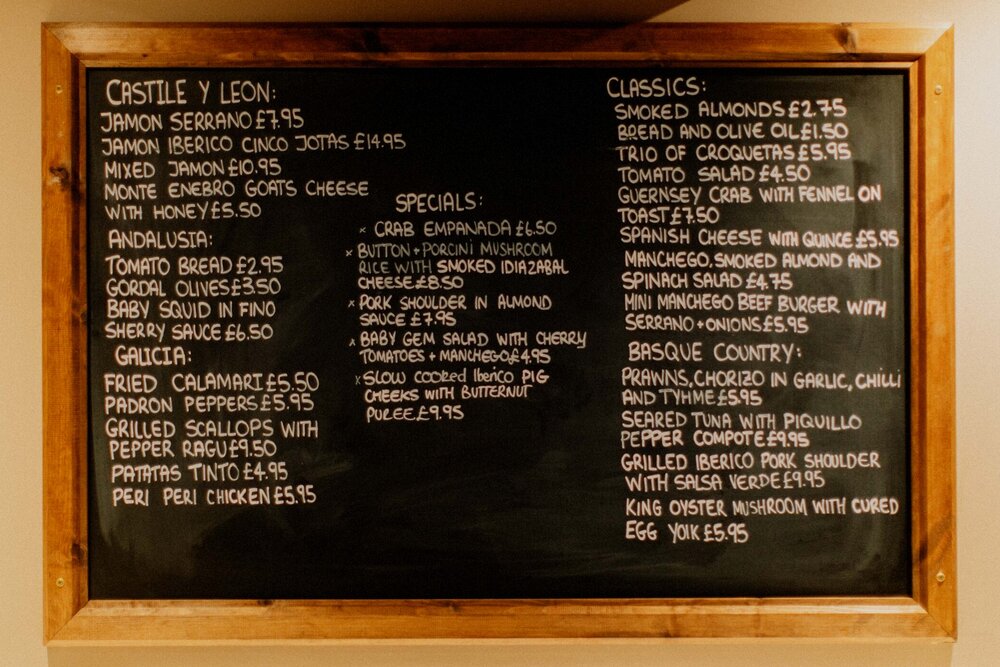 CASTILE Y LEON:
JAMON SERRANO £7.95
JAMON IBERICO CINCO JOTAS £14.95
MIXED JAMON £10.95
MONTE ENEBRO GOATS CHEESE
WITH HONEY £5.50
ANDALUSIA:
TOMATO BREAD £2.95
GORDAL OLIVES £3.50
BABY SQUID IN FINO
SHERRY SAUCE £6.50
GALICIA:
FRIED CALAMARI £5.50
PADRON PEPPERS £5.95
GRILLED SCALLOPS WITH
PEPPER RAGU £9.50
PATATAS TINTO £4.95
PERI PERI CHICKEN £5.95
SPECIALS:
× CRAB EMPANADA £6.50
× BUTTON + PORCINI MUSHROOM
RICE WITH SMOKED IDIAZABAL
CHEESE £8.50
× PORK SHOULDER IN ALMOND
SAUCE £7.95
× BABY GEM SALAD WITH CHERRY
TOMATOES + MANCHEGO £4.95
× SLOW COOKED IBERICO PIG
CHEEKS WITH BUTTERNUT
PUREE £9.95
CLASSICS:
SMOKED ALMONDS £2.75
BREAD AND OLIVE OIL £1.50
TRIO OF CROQUETAS £5.95
TOMATO SALAD £4.50
GUERNSEY CRAB WITH FENNEL ON
TOAST £7.50
SPANISH CHEESE WITH QUINCE £5.95
MANCHEGO, SMOKED ALMOND AND
SPINACH SALAD £4.75
MINI MANCHEGO BEEF BURGER WITH
SERRANO + ONIONS £5.95
BASQUE COUNTRY:
PRAWNS, CHORIZO IN GARLIC, CHILLI
AND TYHME £5.95
SEARED TUNA WITH PIQUILLO
PEPPER COMPOTE £9.95
GRILLED IBERICO PORK SHOULDER
WITH SALSA VERDE £9.95
KING OYSTER MUSHROOM WITH CURED
EGG YOlK £5.95